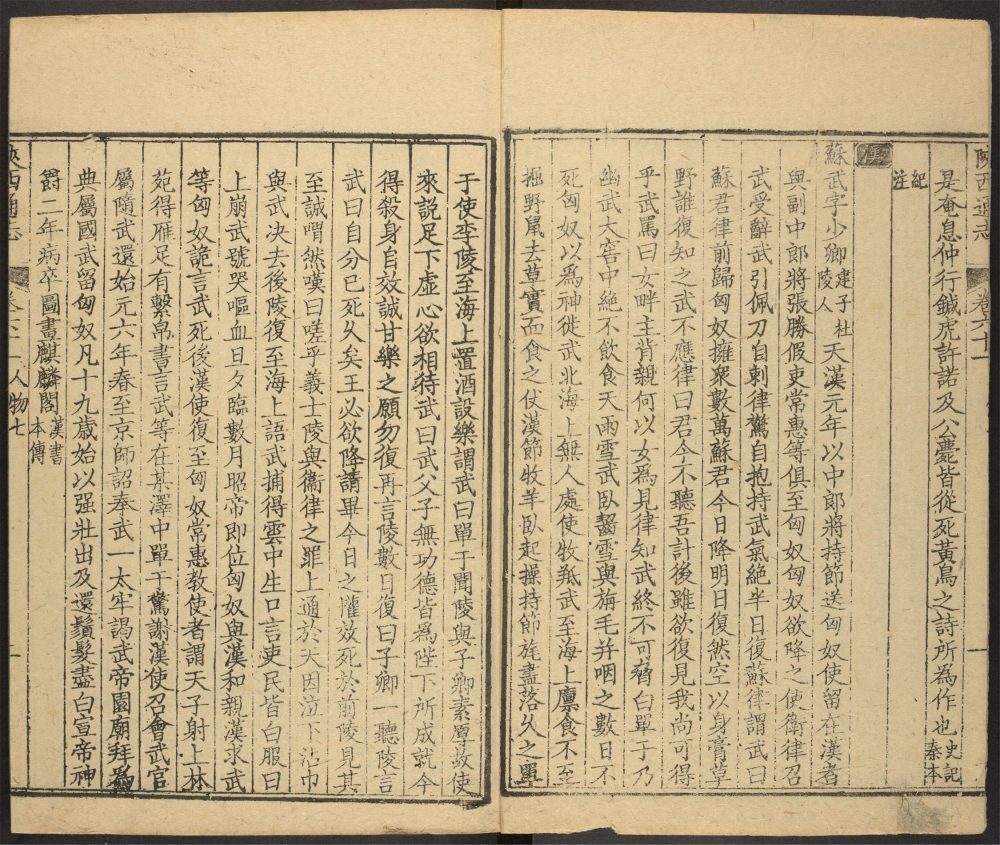 陝西通志 卷六十一 一
是奄息仲行鍼虎許諾及公薨皆從死黃鳥之詩所為作也史記秦本
紀注
漢
蘇武字少卿建子杜陵人天漢元年以中郎將持節送匈奴使留在漢者
與副中郎將張勝假吏常惠等俱至匈奴匈奴欲降之使衛律召
武受辭武引佩刀自刺律驚自抱持武氣絶半日復蘇律謂武曰
蘇君律前歸匈奴擁衆數萬蘇君今日降明日復然空以身膏草
野誰復知之武不應律曰君今不聽吾計後雖欲復見我尚可得
乎武罵曰女畔主背親何以女為見律知武終不可脅白單于乃
幽武大窖中絶不飲食天雨雪武臥齧雪與旃毛并咽之數日不
死匈奴以為神徙武北海上無人處使牧羝武至海上廪食不至
掘野鼠去草實而食之仗漢節牧羊臥起操持節旄盡落久之單
于使李陵至海上置酒設樂謂武曰單于聞陵與子卿素厚故使
來説足下虛心欲相待武曰武父子無功德皆為陛下所成就今
得殺身自效誠甘樂之願勿復再言陵數日復曰子卿一聽陵言
武曰自分已死久矣王必欲降請畢今日之懽效死於前陵見其
至誠喟然嘆曰嗟乎義士陵與衛律之罪上通於天因泣下沾巾
與武决去後陵復至海上語武捕得雲中生口言吏民皆白服曰
上崩武號哭嘔血旦夕臨數月昭帝即位匈奴與漢和親漢求武
等匈奴詭言武死後漢使復至匈奴常惠教使者謂天子射上林
苑得雁足有繫帛書言武等在某澤中單于驚謝漢使召會武官
屬隨武還始元六年春至京師詔奉武一太牢謁武帝園廟拜為
典屬國武留匈奴凡十九歲始以强壯出及還鬚髮盡白宣帝神
爵二年病卒圖畫麒麟閣漢書本傳
陝西通志 卷六十一 人物七 一